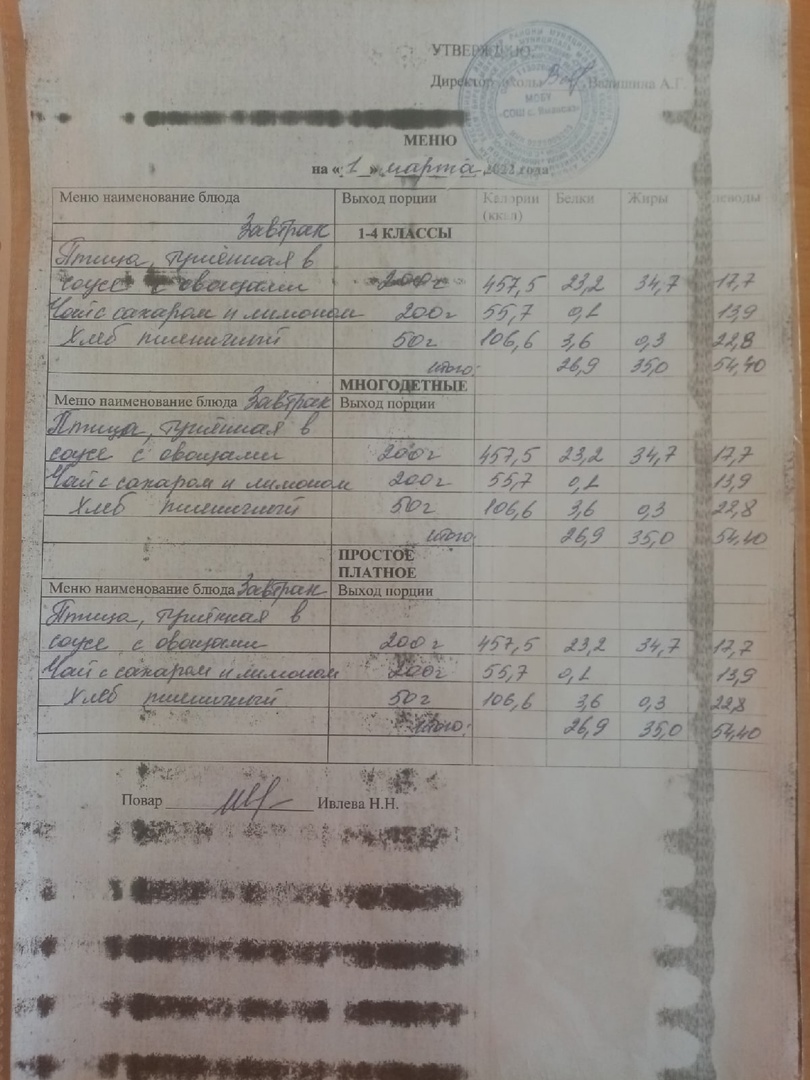 УТВЕРЖДАЮ:
Директор школы Валишина А.Г.
МОБУ
МЕНЮ
на «1» марта 2022 года
Меню наименование блюда Выход порции Калории (ккал) Белки Жиры леводы
Завтрак 1-4 КЛАССЫ
Птица, тушённая в
соусе с овощами 200г 457,5 23,2 34,7 17,7
Чай с сахаром и лимоном 200г 55,7 0,1 13,9
Хлеб пшеничный 50г 106,6 3,6 0,3 22,8
итого: 26,9 35,0 54,40
МНОГОДЕТНЫЕ
Меню наименование блюда Завтрак Выход порции
Птица, тушённая в
соусе с овощами 200г 457,5 23,2 34,7 17,7
Чай с сахаром и лимоном 200г 55,7 0,1 13,9
Хлеб пшеничный 50г 106,6 3,6 0,3 22,8
итого 26,9 35,0 54,40
ПРОСТОЕ
ПЛАТНОЕ
Меню наименование блюда Завтрак Выход порции
Птица, тушённая в
соусе с овощами 200г 457,5 23,2 34,7 17,7
Чай с сахаром и лимоном 200г 55,7 0,1 13,9
Хлеб пшеничный 50г 106,6 3,6 0,3 22,8
итого: 26,9 35,0 54,40
Повар Ивлева Н.Н.